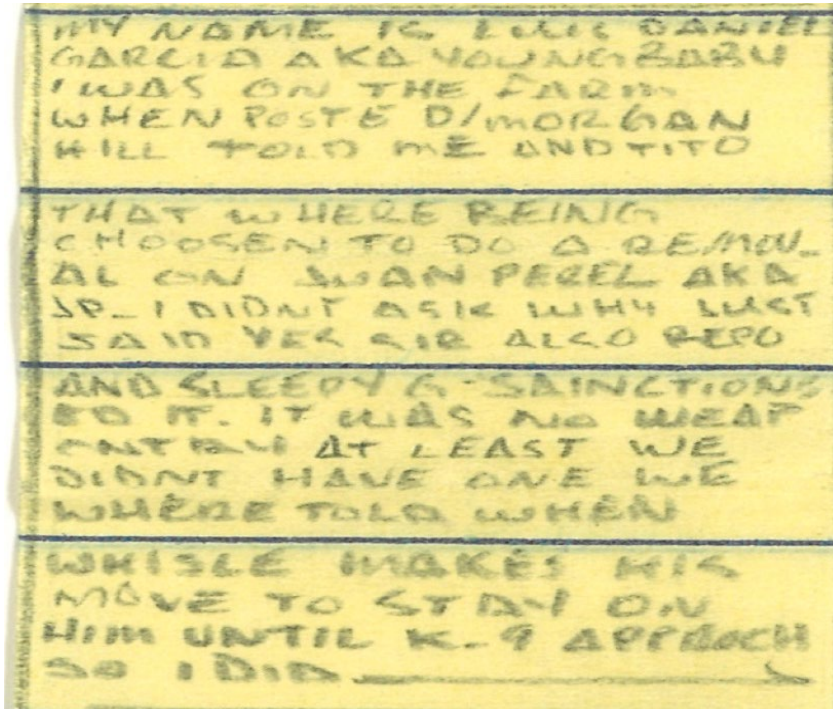 MY NAME IS LUIS DANIEL
GARCIA AKA YOUNGBABY
I WAS ON THE FARM
WHEN POSTE D/MORGAN
HILL TOLD ME AND TITO
THAT WHERE BEING
CHOOSEN TO DO A REMOV-
AL ON JUAN PEREL AKA
JP- I DIDNT ASK WHY JUST
SAID YES SIR ALSO REPO
AND SLEEPY G-SAINCTIONS
ED IT. IT WAS NO WEAP
AT LEAST WE
DIDNT HAVE ONE WE
WHERE TOLD WHEN
WHISLE MAKES HIS
MOVE TO STAY ON
HIM UNTIL K-9 APPROCH
SO I DID